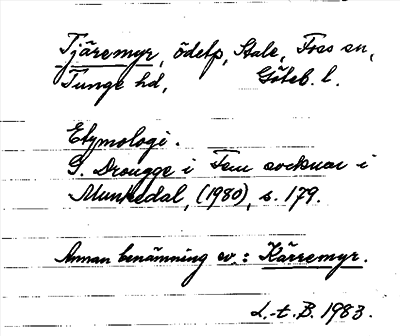 Tjäremyr, ödetp, Stale, Foss sn,
Tunge hd, Göteb. l.
Etymologi.
G. Drougge i Fem socknar i
Munkedal, (1980), s. 179.
Annan benämning sv.: Kärremyr.
L.-t. B. 1983.